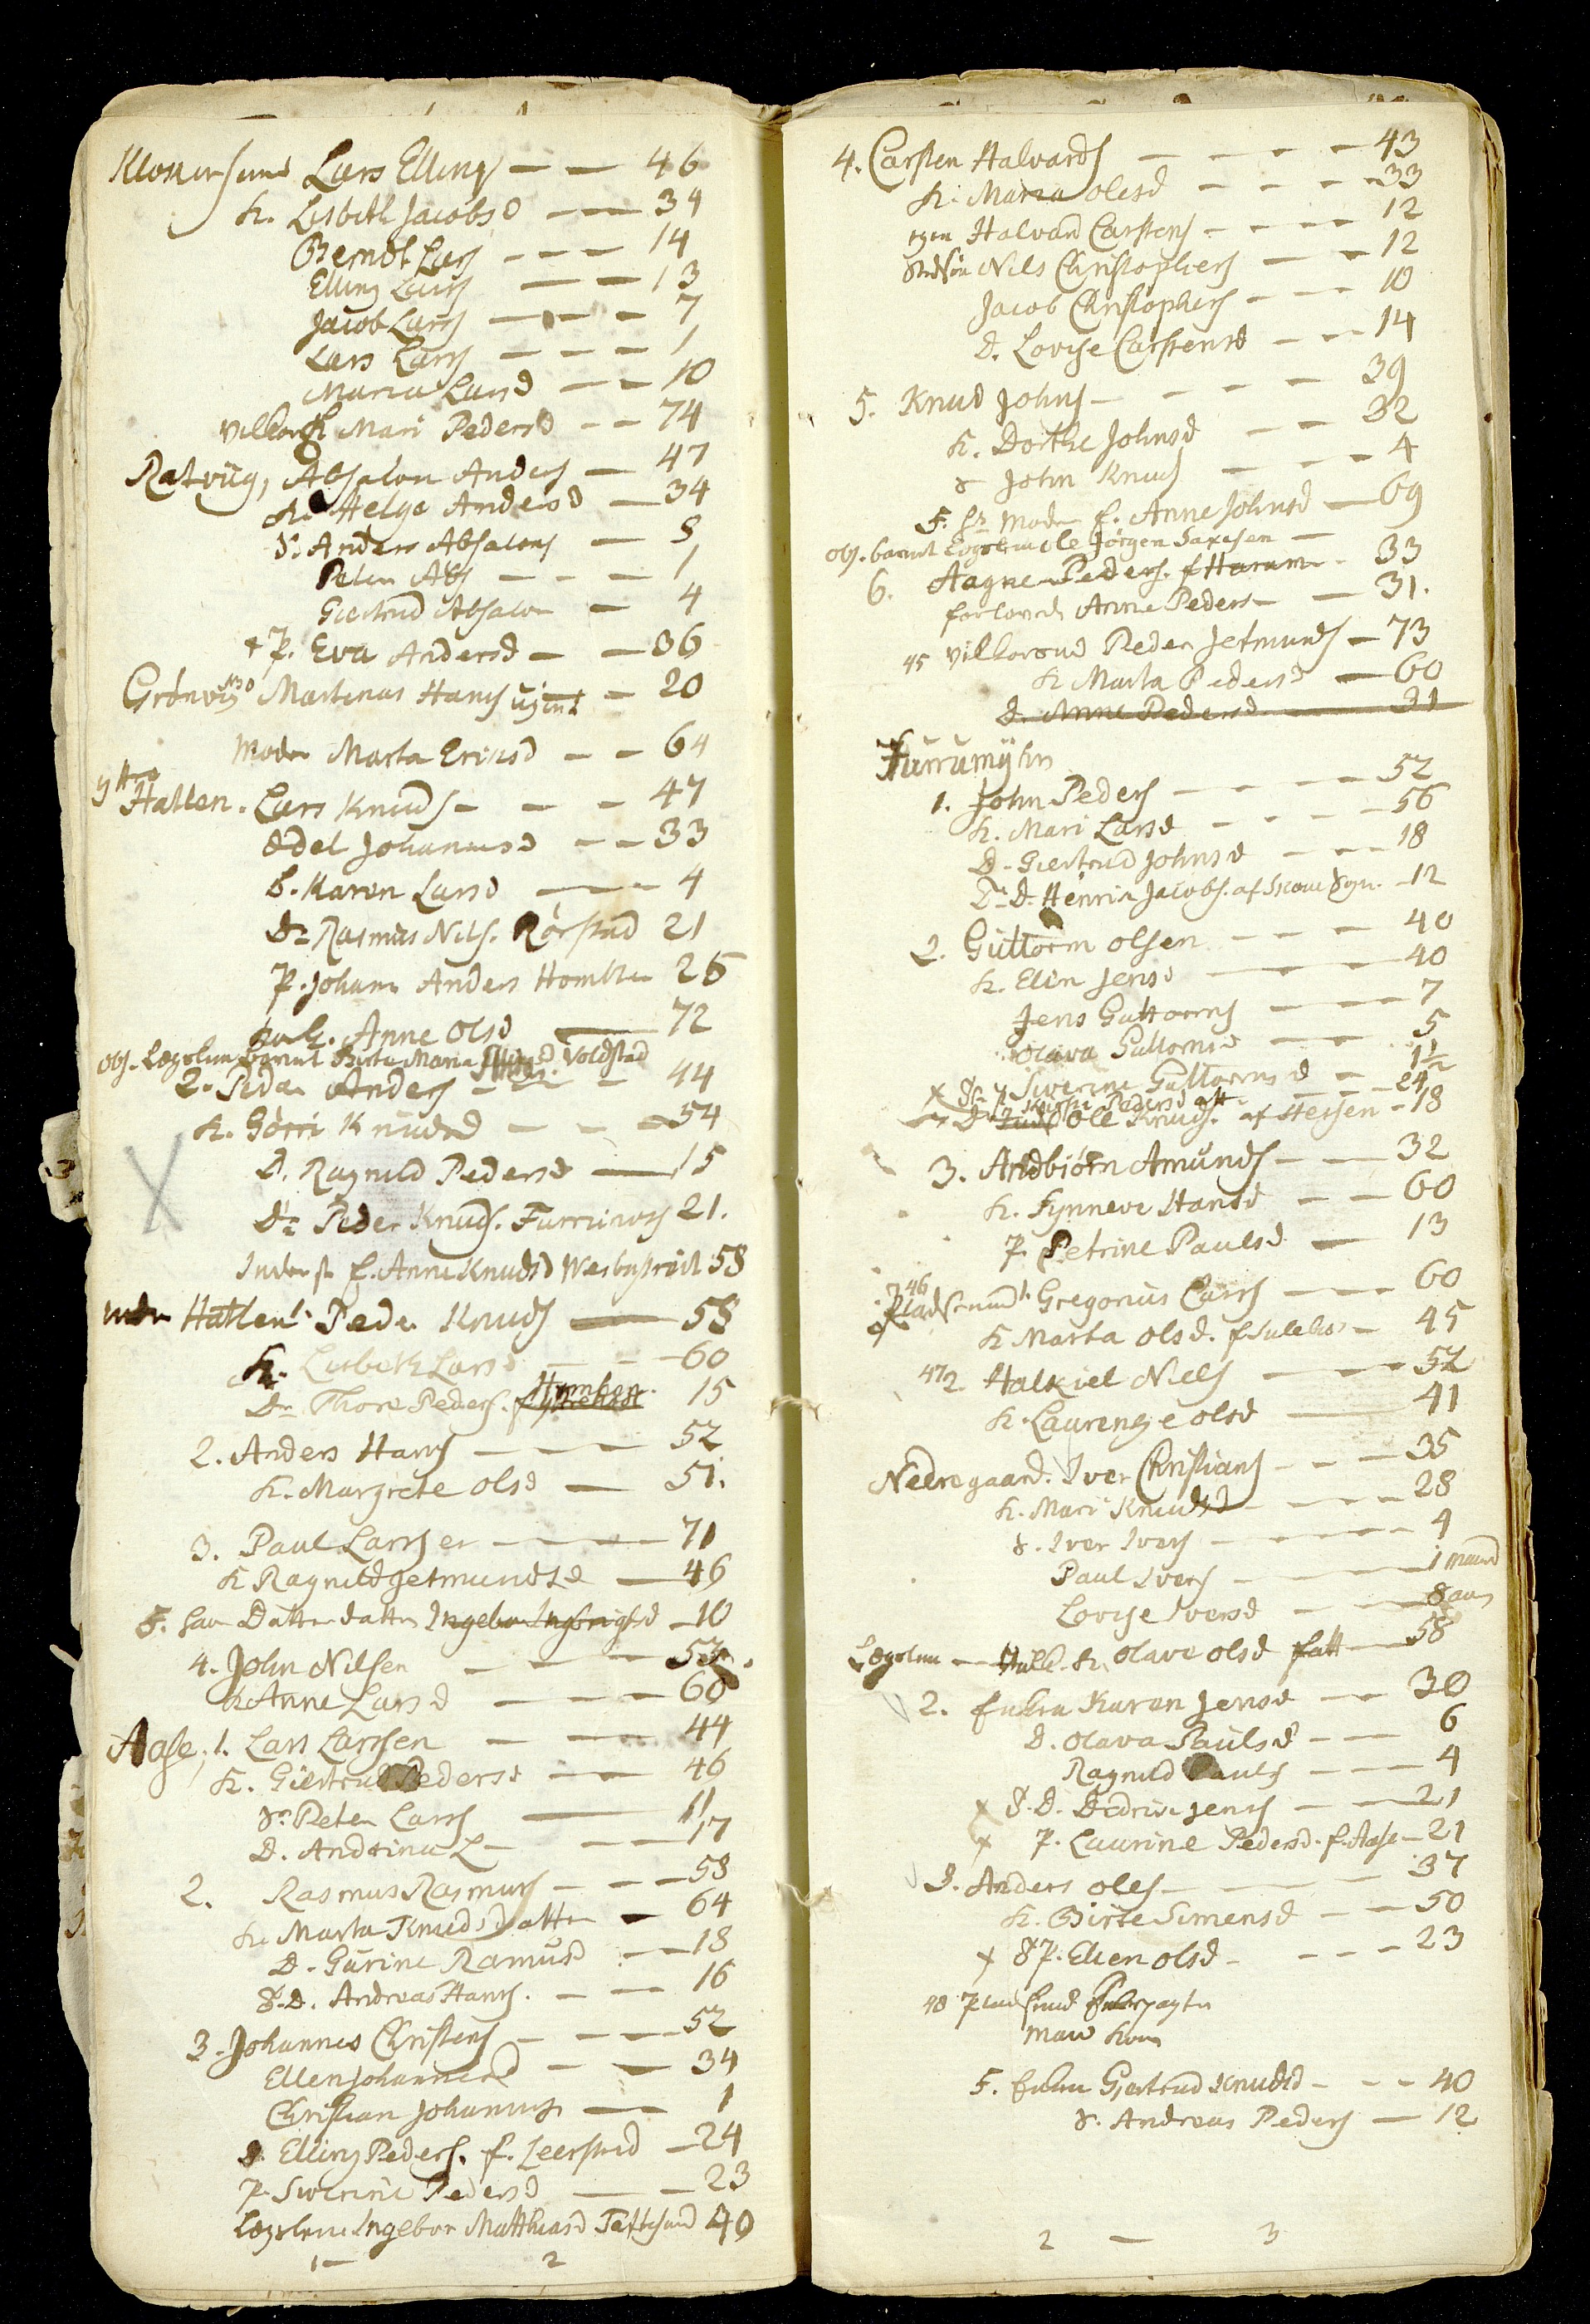 Lars Ellings — — 46
K. Lisbeth Jacobsd — — 34
Berndt Lars — — — 14
Elling Larss — — — 13
Jacob Larss — — — 7
Lars Larss — — — 1
Maria Larsd — — 10
Mari Pedersd — — 74
Ratvüg, Absalon Anders — 47
K. Helge Andersd — 34
S. Anders Absalons — 8
Peter Abs — — — 1
Giertrud Absalon — 4
+ P. Eva Andersd — — 36
Grönvig Martinus Hans ugivt — 20
Moder Marta Ericsd — — 64
Hatlen. Lars Knuds — — — 47
Edel Johannesd — — 33
B. Karen Larsd — — 4
Dr Rasmus Nils. Rörstad 21
P. Johane Anders 26
Anne Olsd — 72
Obs. Lægslem Birte Maria Voldstad
2. Peder Anders — — — 44
K. Görri Knudsd — — — 54
D. Ragnild Pedersd — 15
Dr Peder Knuds. 21.
Inderst f. Anne Knudsd 58
Hatlen 1. Peder Knuds — 58
K. Lisbeth Larsd — — — 60
Dr Thore Peders. f Hymben 15
2. Anders Hans — — — 52
K. Margrete Olsd — 51.
3. Paul Larssen — — — 71
K Ragnild Jetmundsd — 46
F. har Datterdatter Ingebor Ingbrigtsd — 10
4. John Nilsen — — — 53
K Anne Larsd — — — 60
Aase. 1. Lars Larssen — — — 44
K. Giertrud Pedersd — — 46
Sr. Peter Larss — 11
D. Andrina L — — — 17
2. Rasmus Rasmuss — — — 58
K. Marta Knudsdatter — 64
D. Gurine Ramusd — — 18
S. D. Andreas Hans. — — — 16
3. Johannes Christens — — — 52
Ellen Johannesd — — 34
Christian Johannes — — 1
D. Elling Peders. f. Leerstad — 24
P. Siverine Pedersd — — 23
Lægslem Ingebor Matthiasd 40
1 — 2
4. Carsten Halvards — — — — 43
K. Maria Olesd — — — — 33
egen Halvard Carstens — — — — 12
Stedsön Nils Christophers — — 12
Jacob Christophers — — — 10
D. Lovise Carstensd — — 14
5. Knud Johns — — — — 39
K. Dorthe Johnsd — — 32
S John Knuds — — — 4
F. hr Moder f. Anne Johnsd — 69
Obs. barnet Ole Jörgen —
6. Aagne Peders. f Haram — 33
forlovede Anne Peders — — 31.
45 Vilkorsmd Peder Jetmunds — 73
K Marta Pedersd — 60
D. Anne Pedersd — 31
Furrumyhr
1. John Peders — — — — 52
K. Mari Larsd — — — — 56
D. Giertrud Johnsd — — — 18
Dr. D. Henric Jacobs. af 12
2. Guttorm Olsen — — — 40
K. Elin Jensd — — — 40
Jens Guttorms — — — 7
Olava Guttormsd — — 5
Siverine Guttormsd — 1½
Pedersd — — — 24
D Ole Knuds. af Hessen — 18
3. Andbiörn Amunds — — 32
K. Synneve Hansd — — 60
P. Petrine Paulsd — 13
46 Pladsemand 1. Gregorius Larss — — 60
K Marta Olsd. — 45
47 2 Halkiel Niels — — 52
K. Laurenze Olsd — 41
Nedregaard. Iver Christians — — — 35
K. Mari Knudsd — — — — 28
S. Iver Ivers — — — — 4
Paul Ivers — — — 1 maaned
Lovise Iversd — — — 8 aar
Lægslem — K. Olave Olsd fatt — 58
2. Enken Karen Jensd — — 30
D. Olava Paulsd — — 6
Ragnild Pauls — — — 4
x S. D. Jens — — — 21
x P. Laurine Pedersd. f. Aase — 21
3. Anders Oles — — — 37
K. Birte Simensd — — 50
x S P. Elien Olsd — — — — 23
48
5. Enken Gjertrud Knudsd — — — 40
S. Andreas Peders — 12
2 — 3